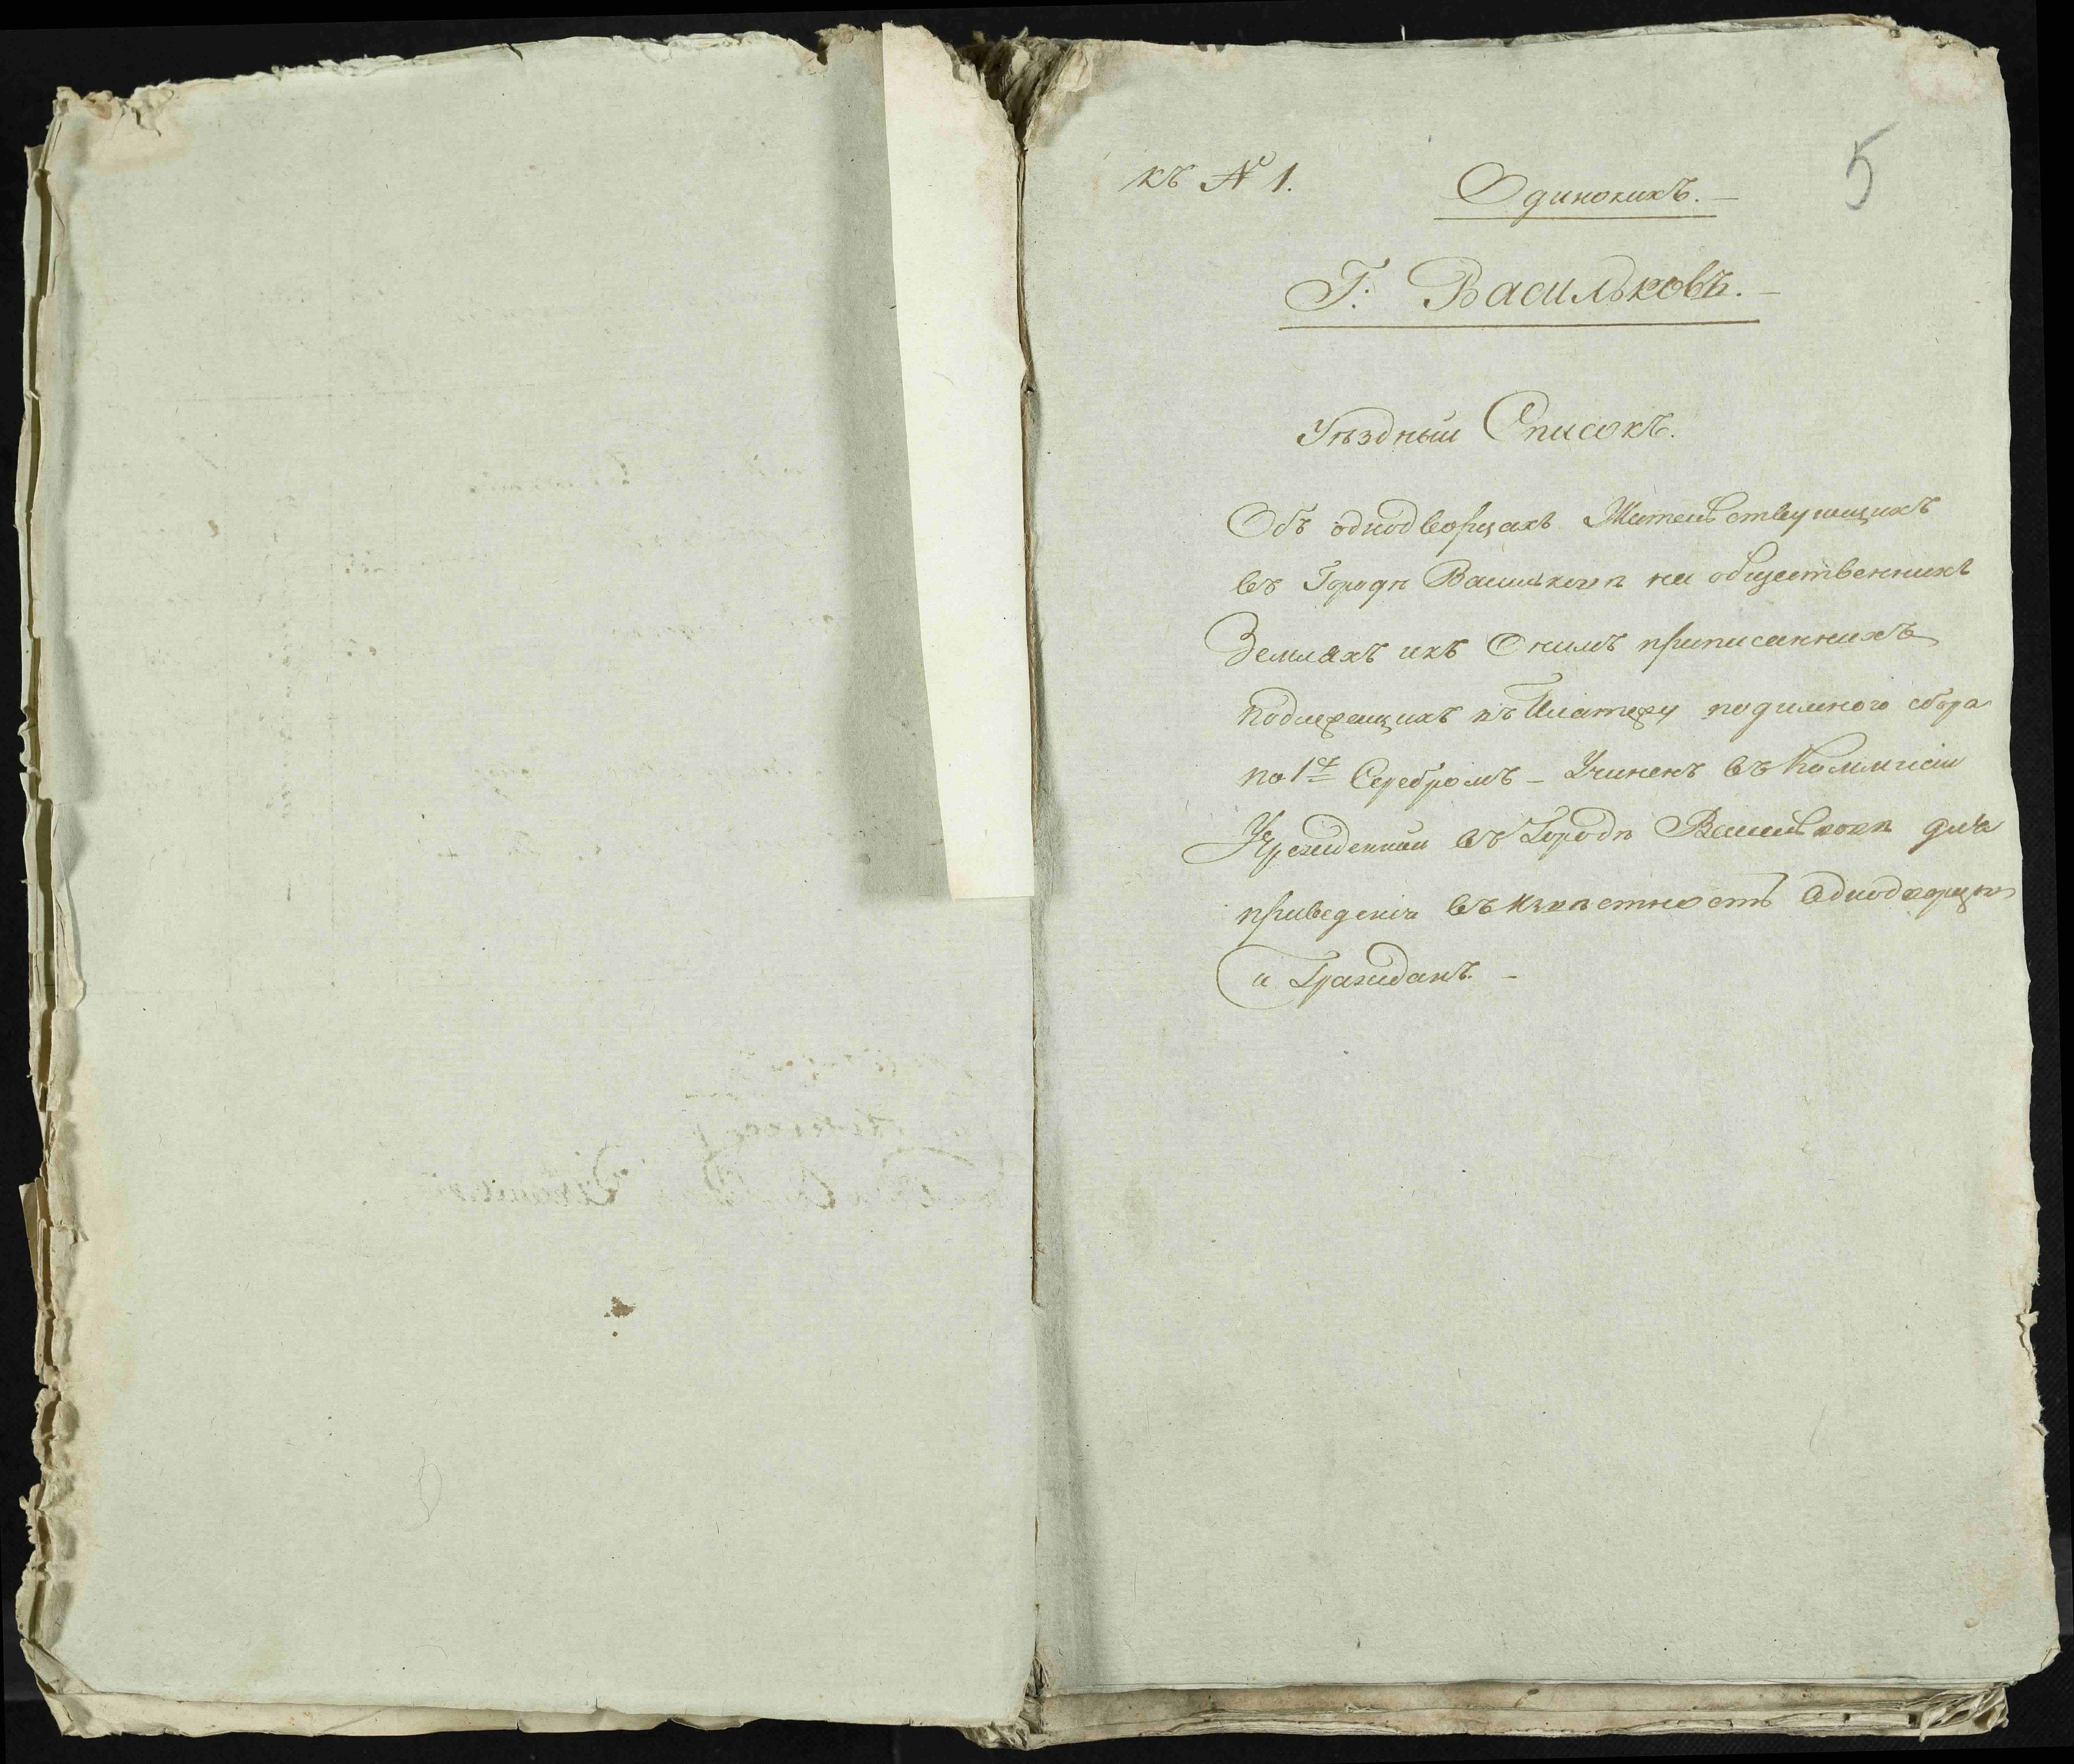 къ № 1.
Одинокихъ. –
5
Г: Васильковъ. –
Уѣздный Списокъ.
Объ однодворцахъ Жительствующихъ
въ Городѣ Васильковѣ на общественныхъ
Земляхъ и къ Онимъ приписанныхъ
подлежащихъ къ Платежу подимного сбора
по 1 Серебромъ – Учиненъ въ Коммисіи
Учрежденной въ Городѣ Васильковѣ для
приведенія въ Извѣстность Однодворцовъ
и Гражданъ. –